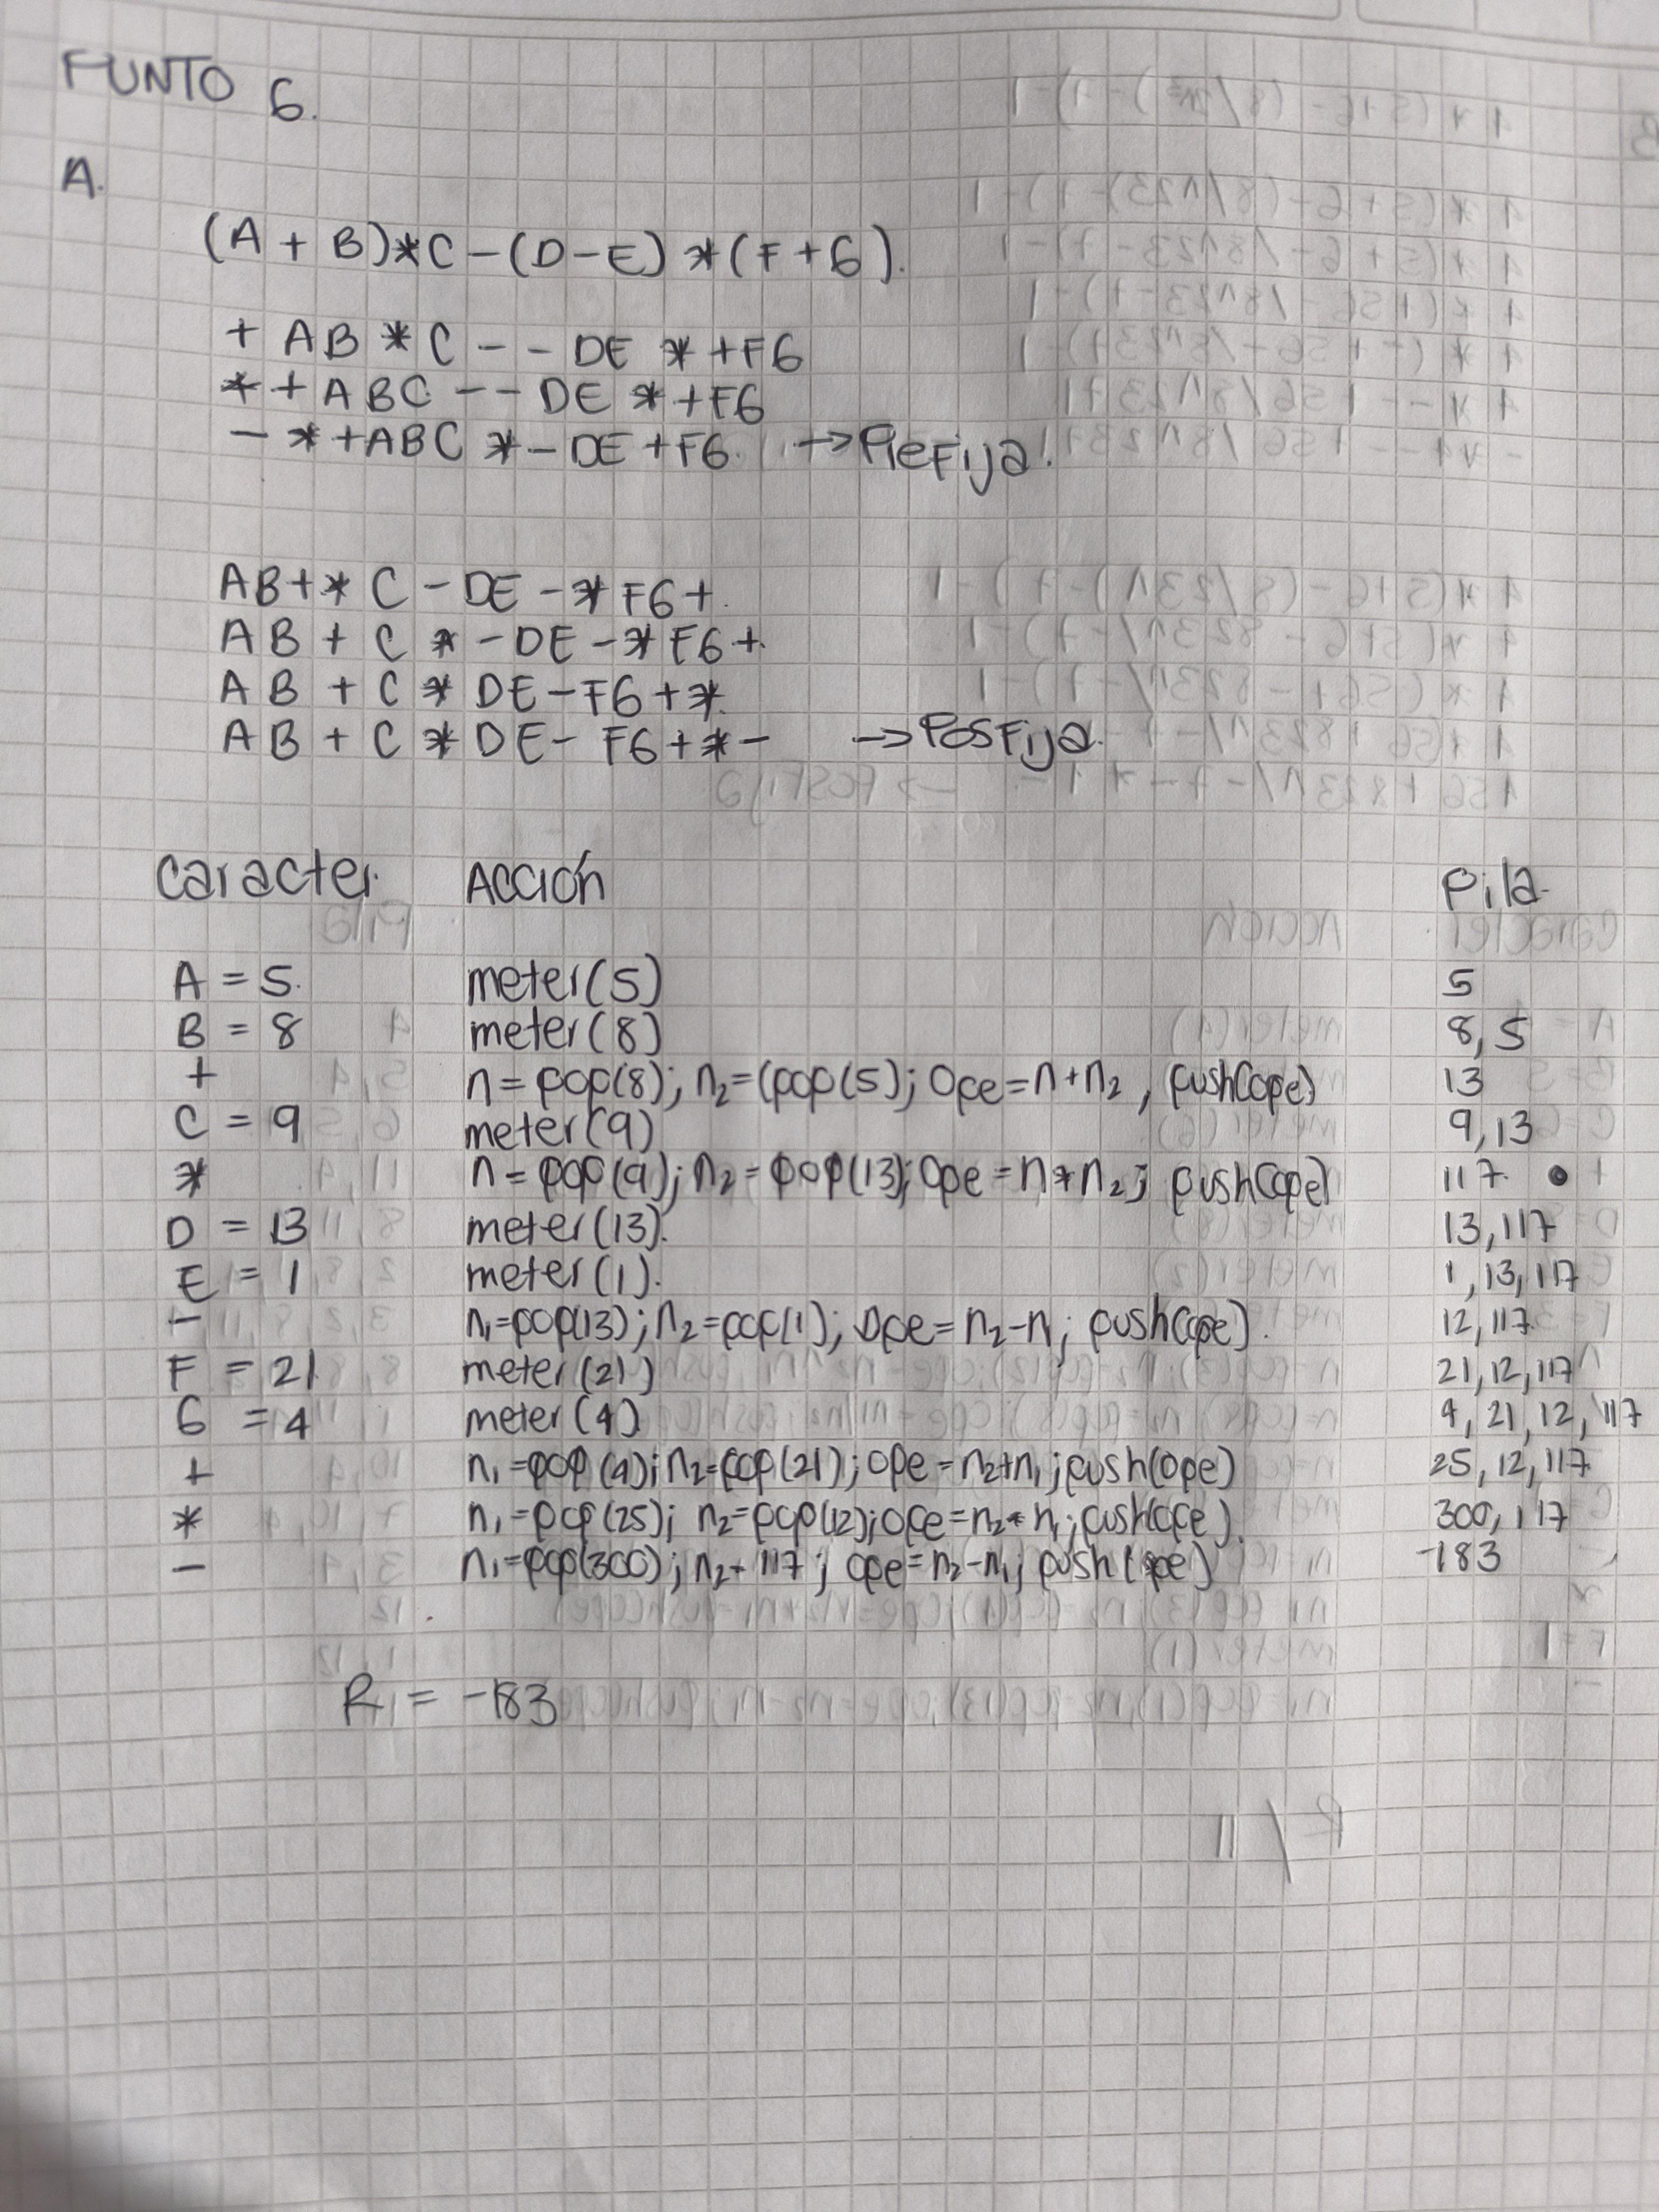 PUNTO 6.
A.
(A + B)*C-(D-E)*(F+G).
+ AB *C - - DE * +FG
* + ABC - - DE * +FG
- * +ABC * - DE +FG. → Prefija.
AB+* C - DE -* FG+.
AB + C * - DE -* FG+.
AB + C * DE-FG+*.
AB + C * DE- FG+*- → Posfija.
Caracter. Acción Pila.
A = 5. meter(5) 5
B = 8 meter(8) 8, 5
+ n = pop(8); n2=(pop(5); Ope=n+n2, push(ope) 13
C = 9 meter(9) 9,13
* n= pop(9); n2= pop(13); Ope=n*n2; push(ope) 117.
D = 13 meter(13). 13,117
E = 1 meter(1). 1,13,117
- n1=pop(13); n2=pop(1); Ope=n2-n1; push(ope). 12,117.
F = 21 meter(21) 21,12,117
G = 4 meter(4) 4, 21, 12, 117
+ n1=pop(4); n2=pop(21); Ope=n2+n1; push(ope) 25, 12, 117
* n1=pop(25); n2=pop(12); ope=n2*n1; push(ope). 300, 117
- n1=pop(300); n2= 117; ope=n2-n1; push(ope) -183
R = -183